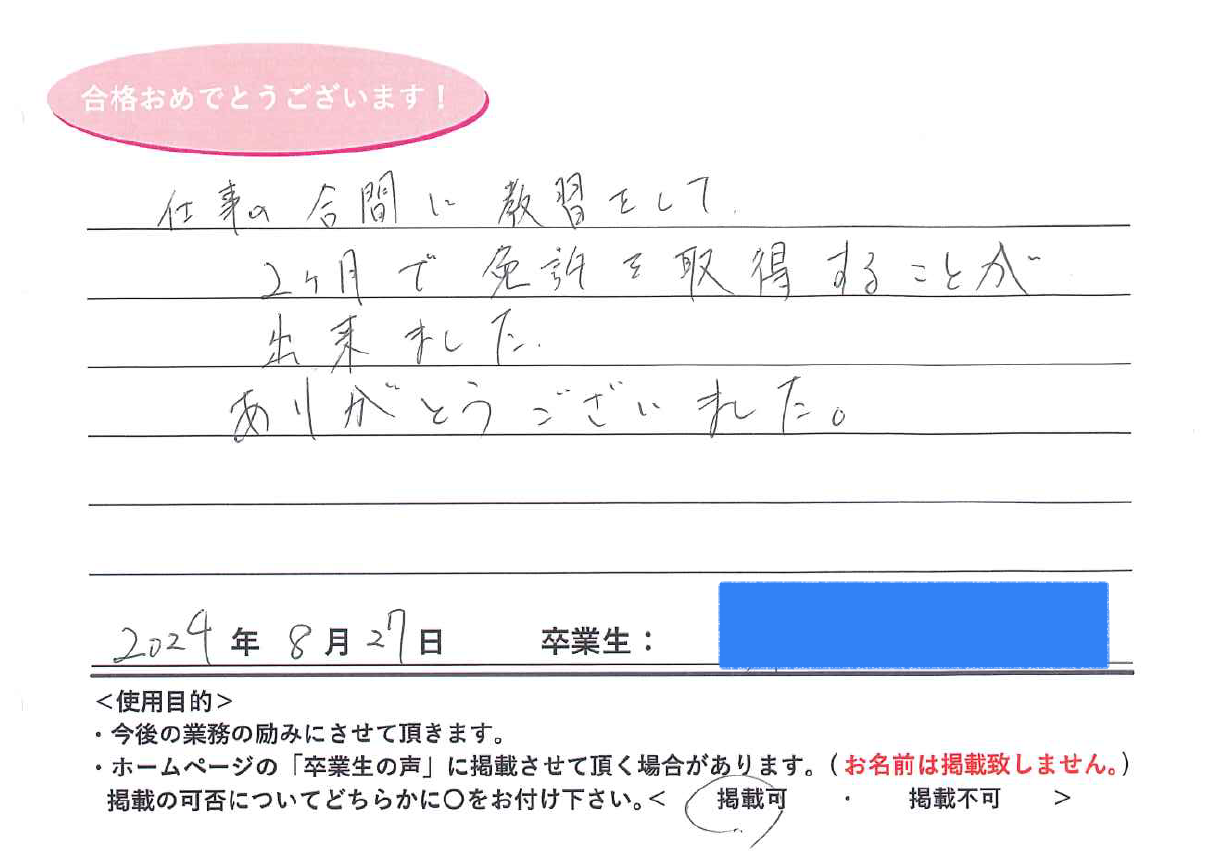 合格おめでとうございます！
仕事の合間に教習をして
2ヶ月で免許を取得することが
出来ました.
ありがとうございました。
2024年 8月27日 卒業生：
＜使用目的＞
・今後の業務の励みにさせて頂きます。
・ホームページの「卒業生の声」に掲載させて頂く場合があります。（お名前は掲載致しません。）
掲載の可否についてどちらかに〇をお付け下さい。＜ 掲載可 ・ 掲載不可 ＞